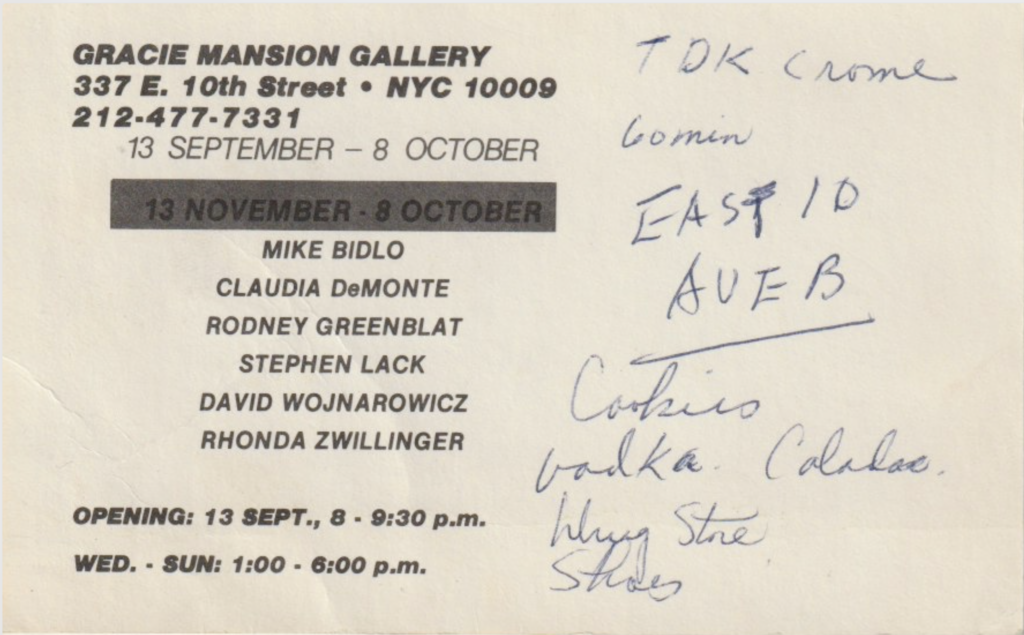 GRACIE MANSION GALLERY
337 E. 10th Street • NYC 10009
212-477-7331
13 SEPTEMBER – 8 OCTOBER
13 NOVEMBER - 8 OCTOBER
MIKE BIDLO
CLAUDIA DeMONTE
RODNEY GREENBLAT
STEPHEN LACK
DAVID WOJNAROWICZ
RHONDA ZWILLINGER
OPENING: 13 SEPT., 8 - 9:30 p.m.
WED. - SUN: 1:00 - 6:00 p.m.
TDK Crome
60min
EAST 10
AVE B
Cookies
vodka.
Drug Store
Shoes